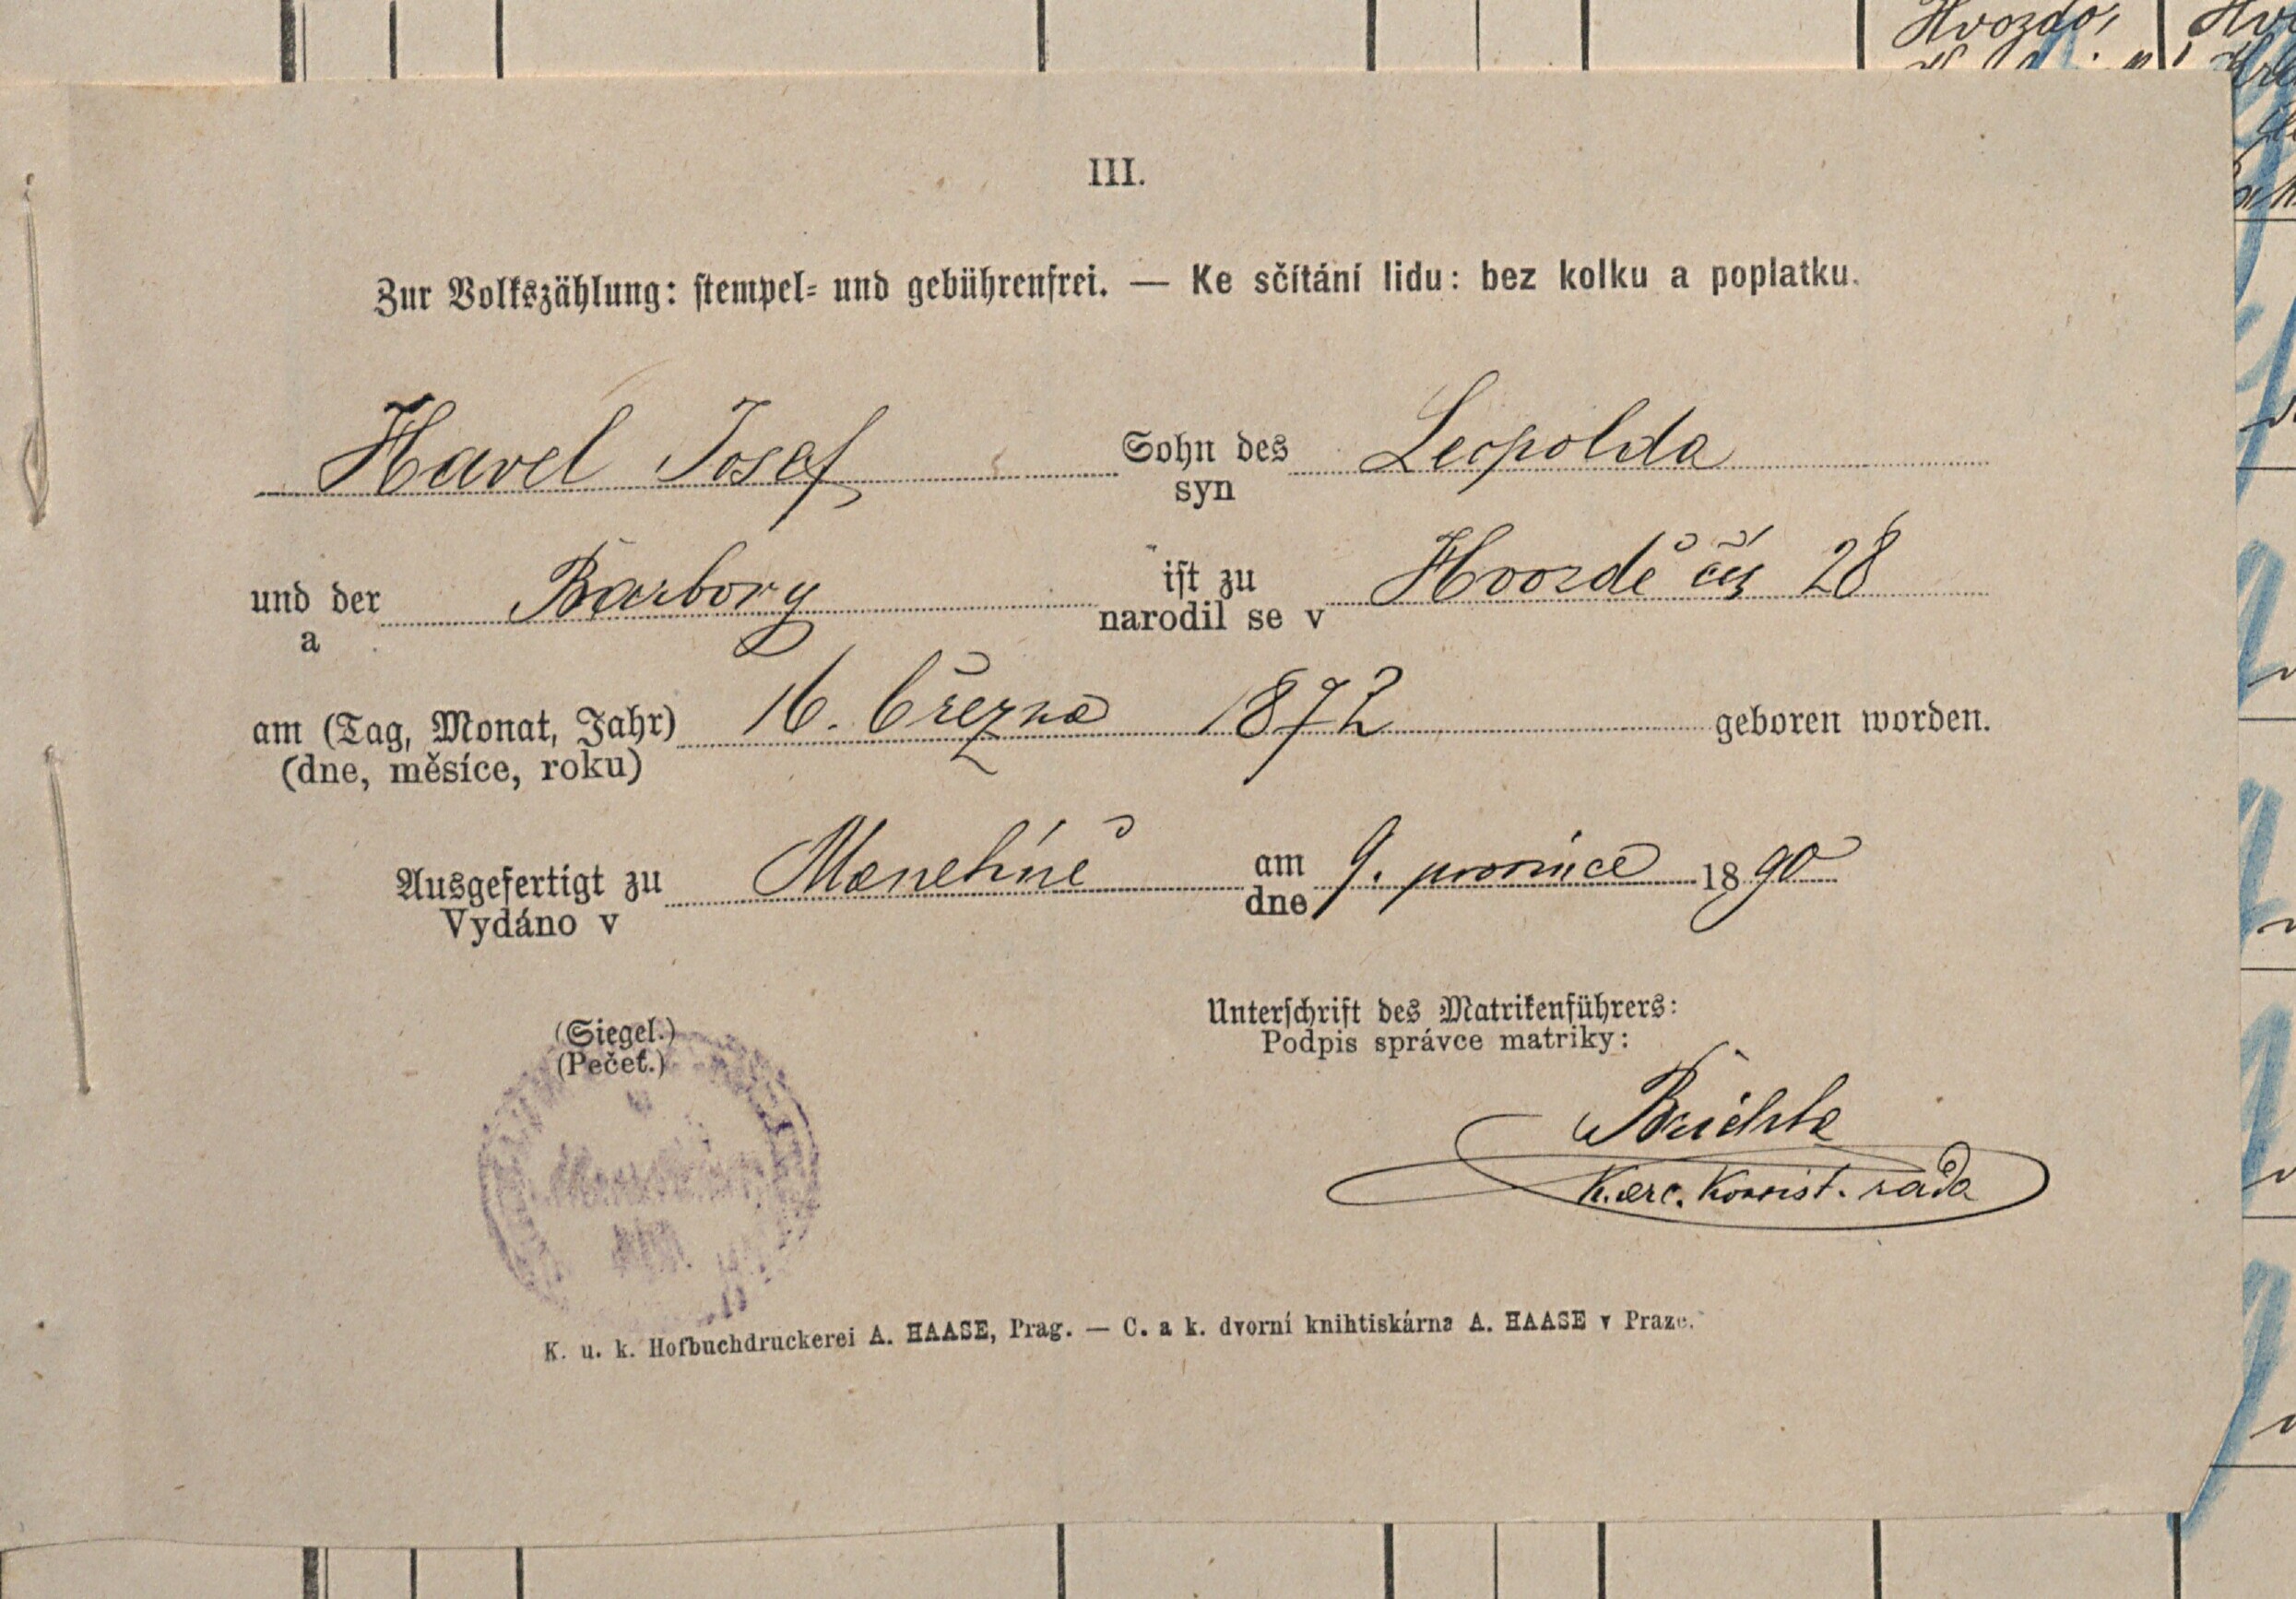 Hvozdě
III.
Zur Volkszählung: stempel- und gebührenfrei. — Ke sčítání lidu: bez kolku a poplatku.
Havel Josef Sohn des Leopolda
syn
und der Barbory ist zu Hvozdě čís 28
a narodil se v
am (Tag, Monat, Jahr) 16. března 1872 geboren worden.
(dne, měsíce, roku)
Ausgefertigt zu Manetíně am 9. prosince 1890
Vydáno v dne
Unterschrift des Matrikenführers:
(Siegel.) Podpis správce matriky:
(Pečeť.)
K. arc. konsist. rada
K. u. k. Hofbuchdruckerei A. HAASE, Prag. — C. a k. dvorní knihtiskárna A. HAASE v Praze.